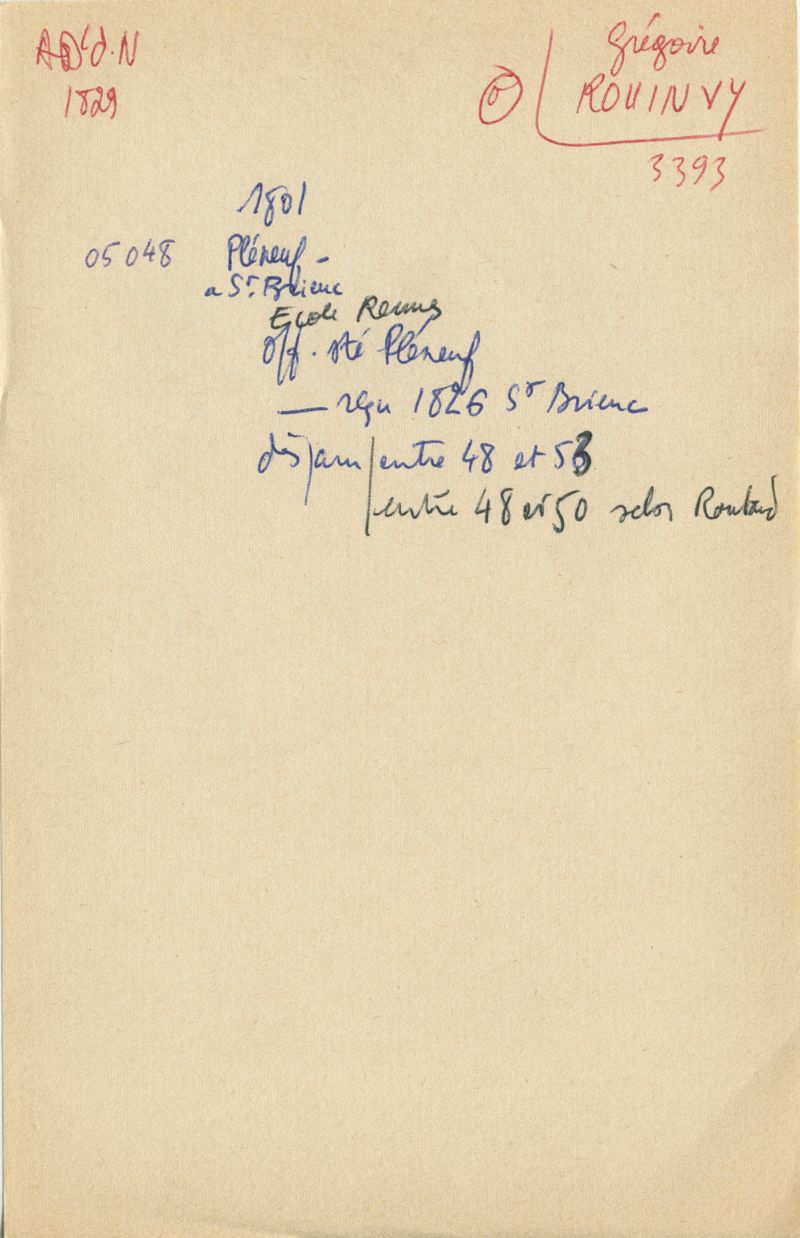 AD C d. N
1829
Grégoire
ROUINVY
3393
1801
05048 Pléneuf -
a St. Brieuc
Ecole Rennes
Off. sté Pléneuf
— reçu 1826 St Brieuc
disparu entre 48 et 53
entre 48 et 50 selon